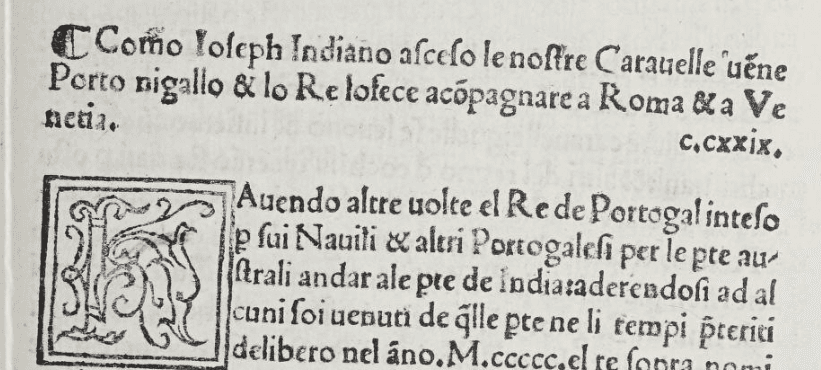 ¶ Como Ioseph Indiano asceso le nostre Carauelle uẽne
Porto nigallo & lo Re lo fece acõpagnare a Roma & a Ve
netia.
c.cxxix.
HAuendo altre uolte el Re de Portogal inteso
ꝑ sui Nauili & altri Portogalesi per le ꝑte au⸗
strali andar ale ꝑte de India:aderendosi ad al
cuni soi uenuti de q̃lle ꝑte ne li tempi p̃teriti
delibero nel ãno.M.ccccc.el re sopra nomi